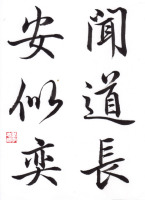 聞道長
安似奕